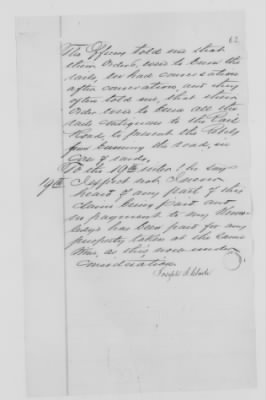 62
The Officers told me that
their Orders, were to burn the
rails, we had conversation
after conversation, and they
often told me, that their
Order were to burn all the
rails contiguous to the Rail
Road, to prevent the Rebels
from burning the road, in
Case of raids.
To the 19th inter: he say
19th I expect not, I never
heard of any part of this
claim being paid and
no payment to my know-
ledge has been paid for any
property taken at the same
time, as this now under
consideration.
Joseph A.